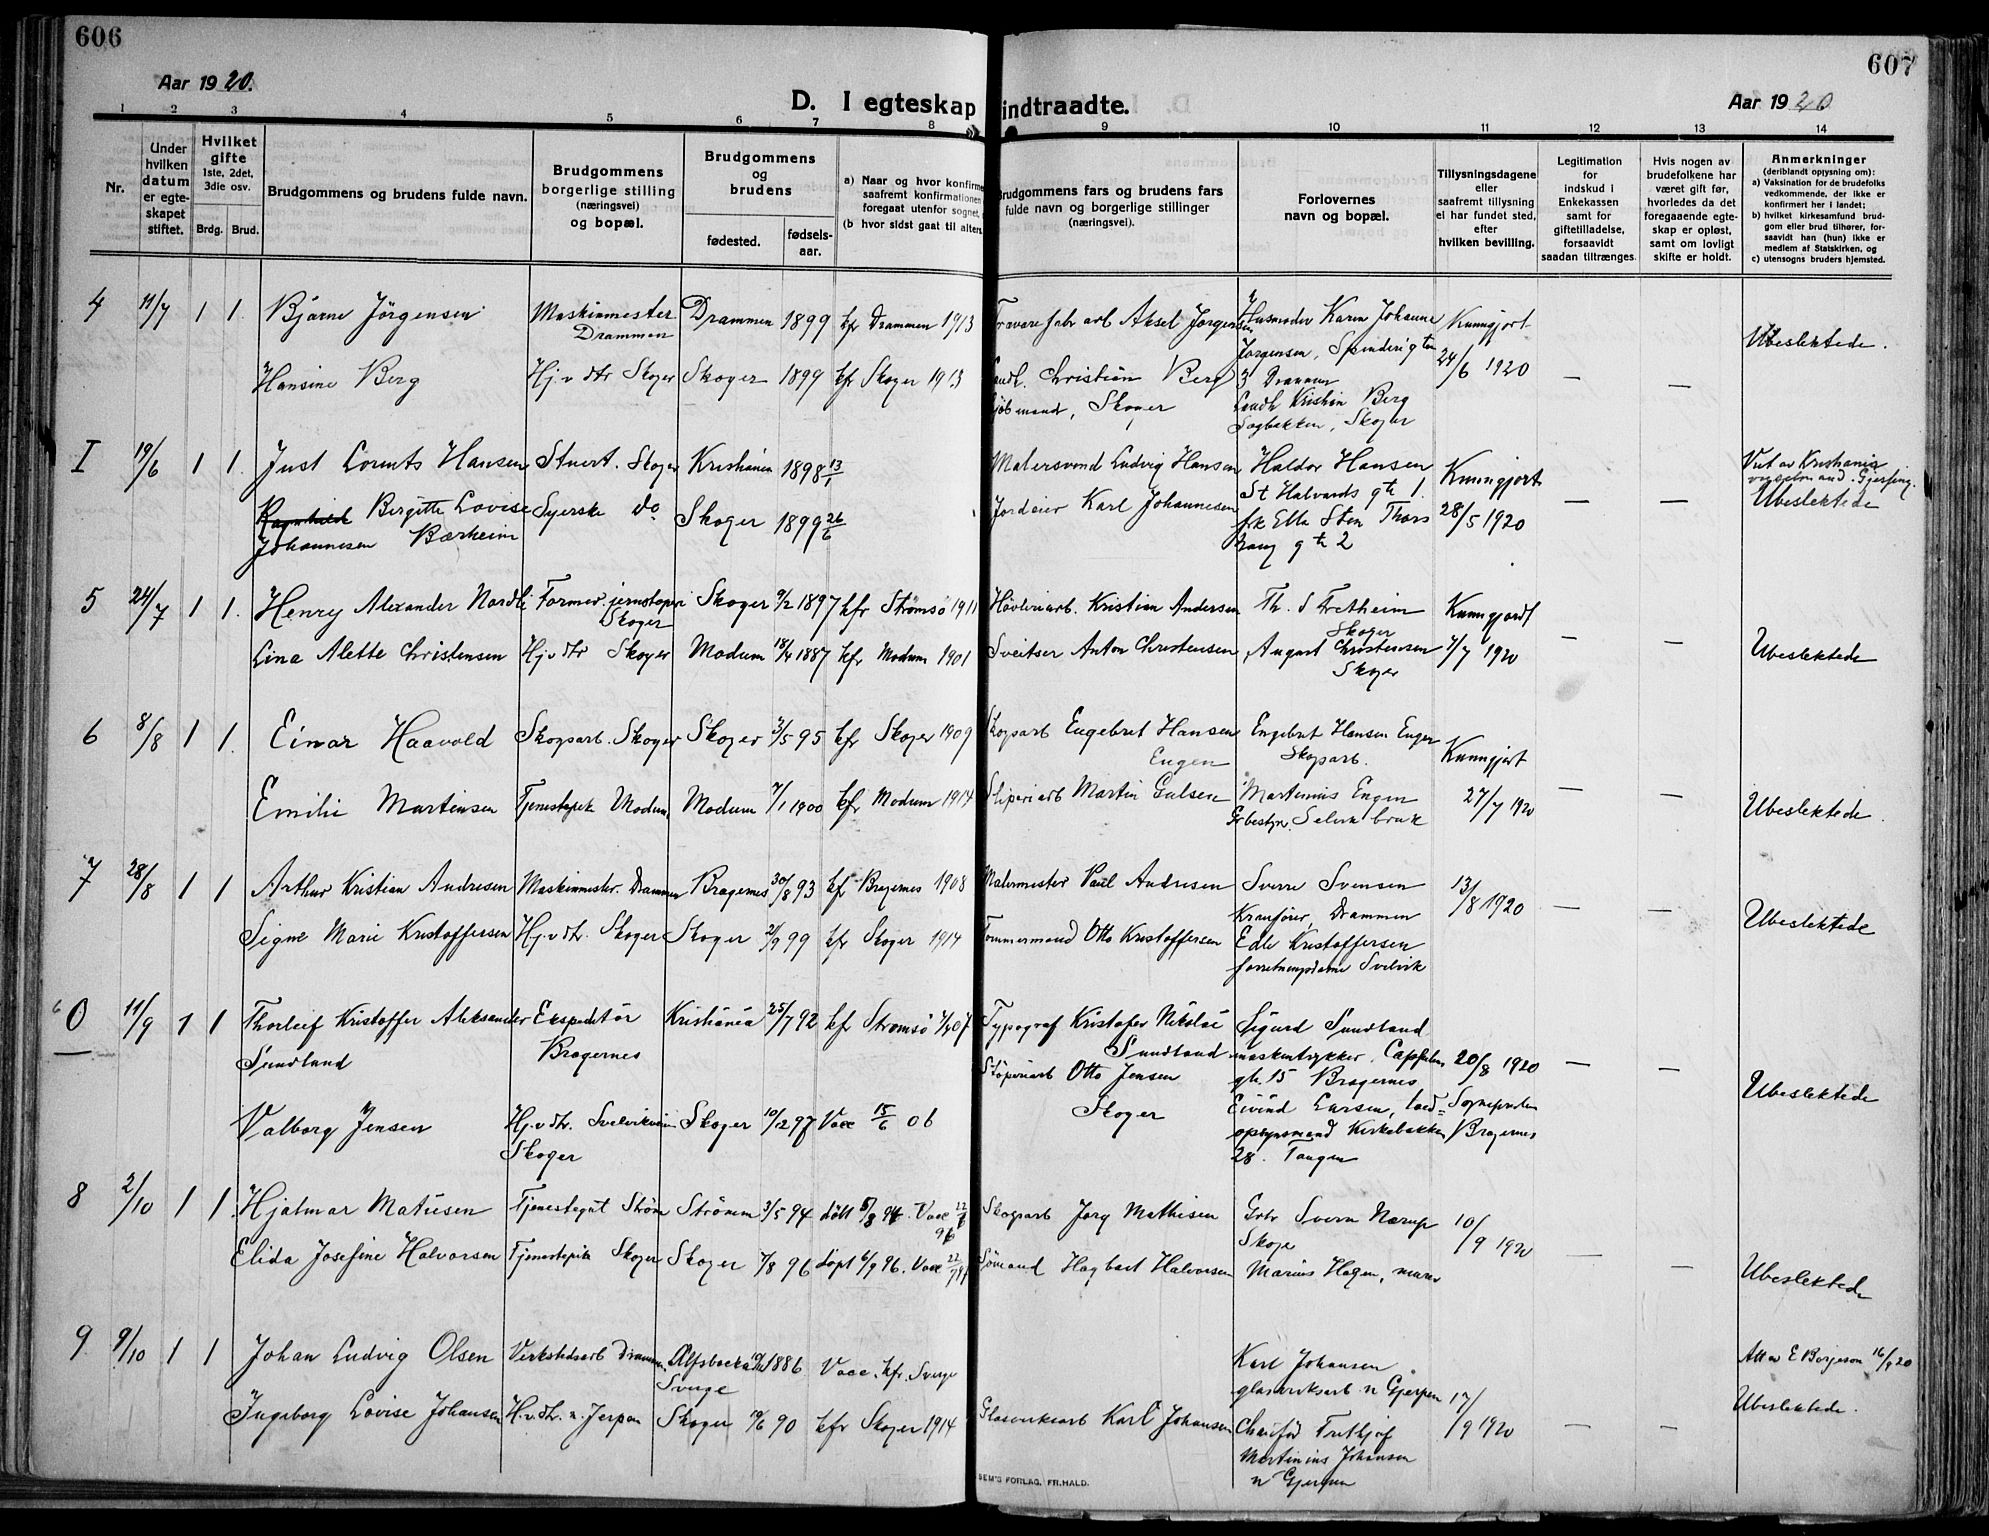 606
607
Aar 1920.
D. I egteskap indtraadte.
Aar 1920
1 2 3 4 5 6 7 8 9 10 11 12 13 14
Nr.
Under hvilken datum er egteskapet stiftet.
Hvilket gifte 1ste, 2det, 3die osv.
Brdg. Brud.
Brudgommens og brudens fulde navn.
Brudgommens borgerlige stilling (næringsvei) og bopæl.
Brudgommens og brudens
fødested. fødselsaar.
a) Naar og hvor konfirme
saafremt konfirmationen
foregaat utenfor sognet,
(b hvor sidst gaat til alters.
Brudgommens fars og brudens fars
fulde navn og borgerlige stillinger
(næringsvei).
Forlovernes
navn og bopæl.
Tillysningsdagene
eller
saafremt tillysning
ei har fundet sted,
efter
hvilken bevilling.
Legitimation
for
indskud i
Enkekassen
samt for
giftetilladelse,
forsaavidt
saadan tiltrænges.
Hvis nogen av
brudefolkene har
været gift før,
hvorledes da det
foregaaende egte-
skap er opløst,
samt om lovligt
skifte er holdt.
Anmerkninger
(deriblandt opjysning om):
a) Vaksination for de brudefolks
vedkommende, der ikke er
konfirmert her i landet;
b) hvilket kirkesamfund brud-
gom eller brud tilhører, for-
saavidt han (hun) ikke er
medlem af Statskirken, og
c) utensogns bruders hjemsted.
4 11/7 1 1. Bjarne Jörgensen Maskinmester Drammen Drammen 1899 kfr Drammen 1913 Aksel Jorgensen Husmoder Karen Johanne Jorgensen, Drammen Kunngjort 24/6 1920
Hansine Berg Hj.v dtr Skoger Skoger 1899 kfr Skoger 1913 Christian Berg, Skoger Kristian Berg, Skoger — — Ubeslektede.
I 19/6 1 1. Just Lorents Hansen Stuert. Skoger Kristiania 1898 13/1 Malersvend Ludvig Hansen Haldor Hansen St Halvards gt 1. Kunngjort 28/5 1920 — —
Ragnhild Birgitte Lovise Johannesen Bærheim Syerske do Skoger 1899 26/6 Jordeier Karl Johannesen frk Ella Sten Thors gt 2 Ubeslektede
5 24/7 1 1. Henry Alexander Nordli Former. jernstøperi Skoger Skoger 9/2 1897 kfr Strømsö 1911 Høvleriarb. Kristian Andersen Th. S Fretheim Skoger Kunngjordt 7/7 1920
Lina Alette Christensen Hj.v dtr Skoger Modum 18/4 1887 kfr Modum 1901 Sveitser Anton Christensen August Christensen Skoger — — Ubeslektede
6 8/8 1 1. Einar Haavold Skogsarb. Skoger Skoger 3/5 95 kfr Skoger 1909 Skogsarb Engebret Hansen Engen Engebret Hansen Engen Skogsarb. Kunngjort 27/7 1920
Emilie Martinsen Tjenestepike Modum Modum 7/1 1900 kfr Modum 1914 Sliperiarb Martin Gulsen Martinius Engen Grbestyr. Selvik bruk — — Ubeslektede.
7 28/8 1 1 Arthur Kristian Andresen Maskinmester. Drammen Bragernes 30/8 93 kf Bragernes 1908 Malermester Paul Andresen Sverre Svensen Kranfører, Drammen 13/8 1920
Signe Marie Kristoffersen Hj.v dtr. Skoger Skoger 2/9 99 kfr Skoger 1914 Tømmermand Otto Kristoffersen Edle Kristoffersen forretningsdame Svelvik — — Ubeslektede
O 11/9 1 1 Thorleif Kristoffer Aleksander Sundland Ekspeditör Bragernes Kristiania 25/7 92 kfr Stromsö 7/4 07 Typograf Kristofer Nikolai Sundland Sigurd Sundland maskintrykker, gt. 15 Bragernes 20/8 1920
Valborg Jensen Hj.v dtr. Svelvikveien Skoger Skoger 10/12 97 Vacc 15/6 06 Støperiarb Otto Jensen Skoger Eivind Larsen, lædopsynsmand Kirkebakken 28. Tangen Sognepresten Bragernes — — Ubeslektede
8 2/10 1 1. Hjalmar Matisen Tjenestegut Strøm Strömm 3/5 94 döbt 5/8 94. Vacc 22/6 96 Skogsarb Jorg Mathisen Grbr Svern Nærup Skoge 10/9 1920
Elida Josefine Halvorsen Tjenestepike Skoger Skoger 7/8 96 døpt 6/9 96. Vacc Sömand Hagbart Halvorsen Marius Hagen, murer — — Ubeslektede
9 9/10 1 1 Johan Ludvig Olsen Verkstedsarb Drammen Sverge 1886 Vacc. kfr. Sverge Karl Johansen glasverksarb n Gjerpen Att av E Borjeson 16/9 20
Ingeborg Lovise Johansen H.v.dtr. n. Jerpen Skoger 19/6 90 kfr Skoger 1914 Glasverksarb Karl Johansen Martinius Johansen n Gjerpen 17/9 1920 — — Ubeslektede.
SEM'S FORLAG, FR.HALD.